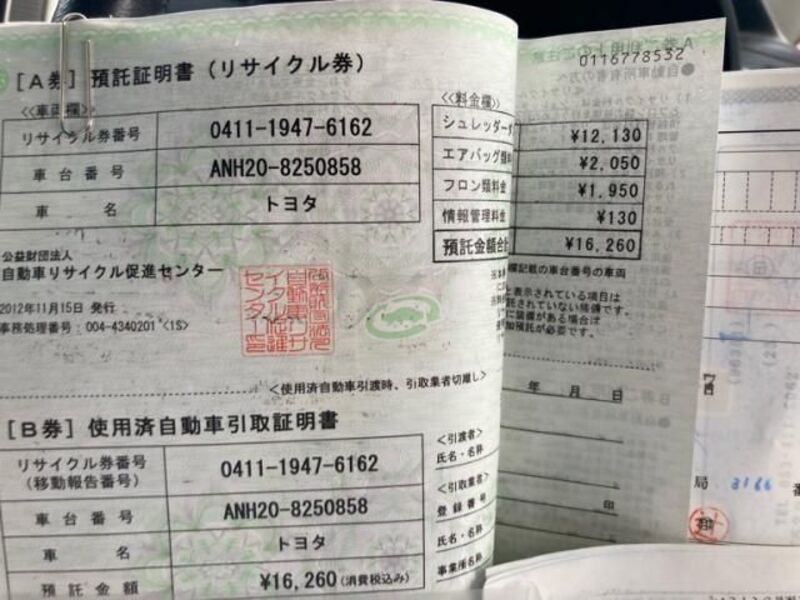 0116778532
[A券] 預託証明書 (リサイクル券)
<<車両欄>>
リサイクル券番号 0411-1947-6162
車台番号 ANH20-8250858
車名 トヨタ
<<料金欄>>
シュレッダーダ ¥12,130
エアバッグ類料 ¥2,050
フロン類料金 ¥1,950
情報管理料金 ¥130
預託金額合計 ¥16,260
公益財団法人
自動車リサイクル促進センター
2012年11月15日 発行
事務処理番号:004-4340201 <1S>
欄記載の車台番号の車両
と表示されている項目は
託されていない装備です。
に装備がある場合は
加預託が必要です。
<使用済自動車引渡時、引取業者切離し>
年 月 日
[B券] 使用済自動車引取証明書
リサイクル券番号
(移動報告番号) 0411-1947-6162
車台番号 ANH20-8250858
車名 トヨタ
預託金額 ¥16,260 (消費税込み)
<引渡者>
氏名・名称
<引取業者>
登録番号
氏名・名称
事業所名称
印
局 3166 番